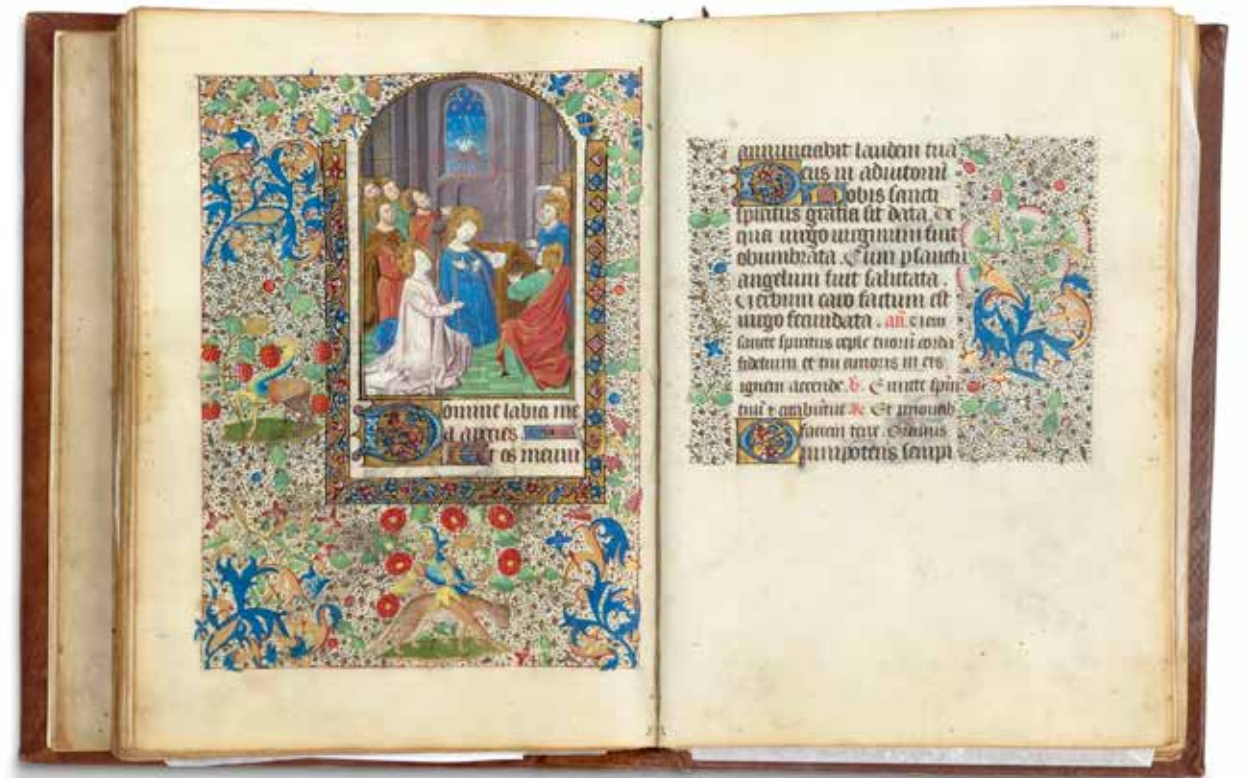 Domine labia me
a aperies
Et os meum
annunciabit laudem tua
Deus in adiutori
Nobis sancti
spiritus gratia sit data, de
qua virgo virginum fuit
obumbrata. Cum p sanctu
angelum fuit salutata.
Verbum caro factum est
virgo fecundata. añ. Veni
sancte spiritus reple tuorū cordā
fidelium et tui amoris in eis
ignem accende. Emitte spirı
tuū et creabuntur Et renovab
faciem terre. Oremus
Omnipotens sempi